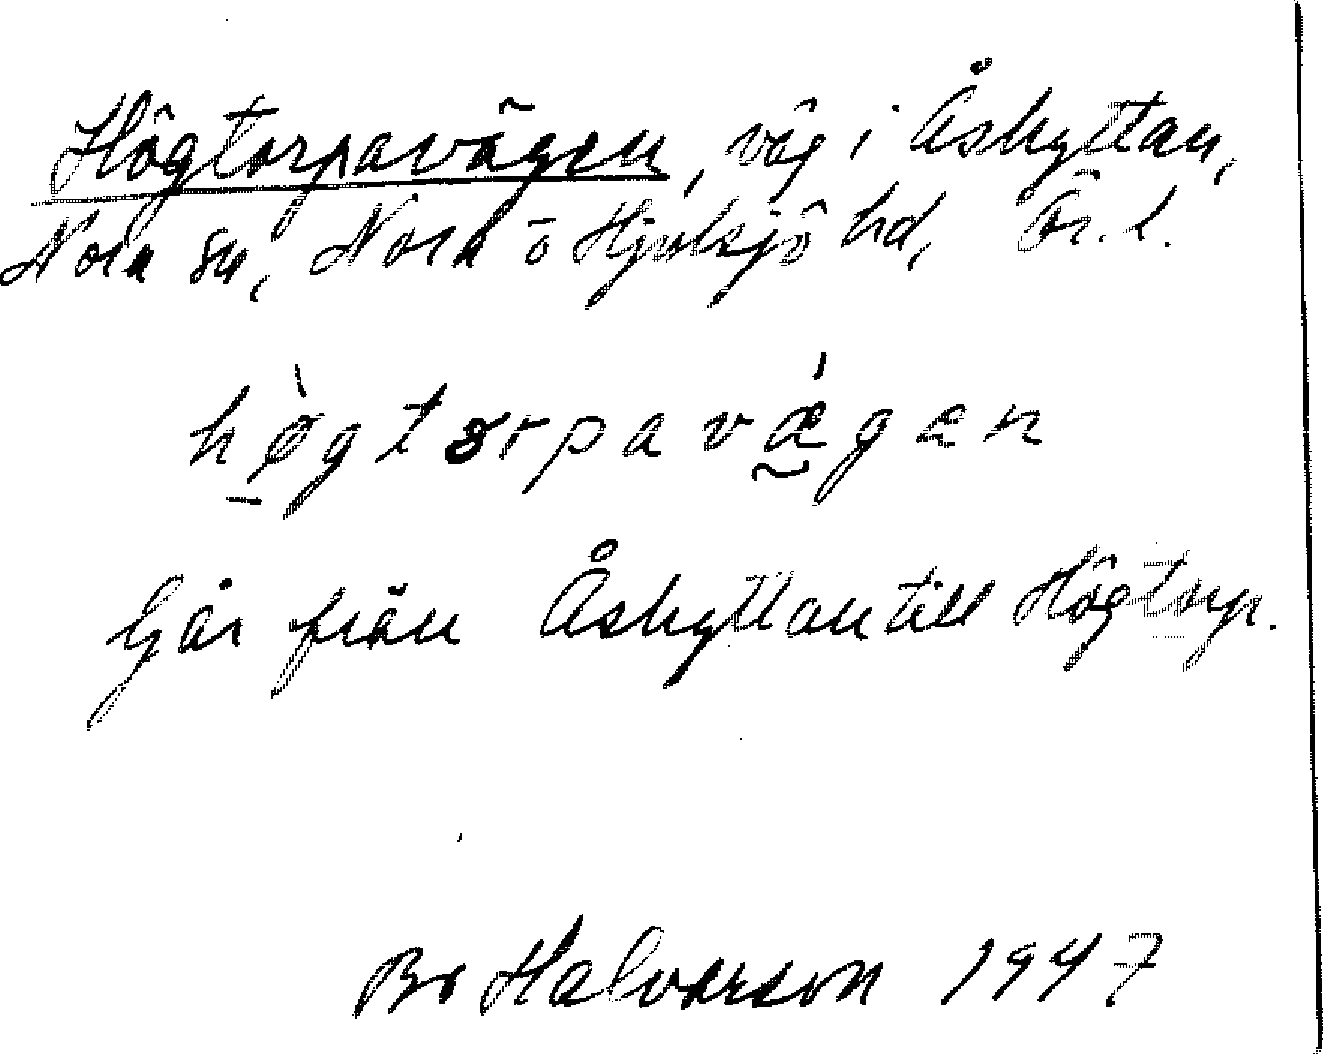 Högtorpavägen, väg i Åshyttan,
Nora sn, Nora o Hjulsjö hd, Ör. l.
hø̀gtorpavǽgæn
Går från Åshyttan till Högtorp.
Bo Halvarson 1947